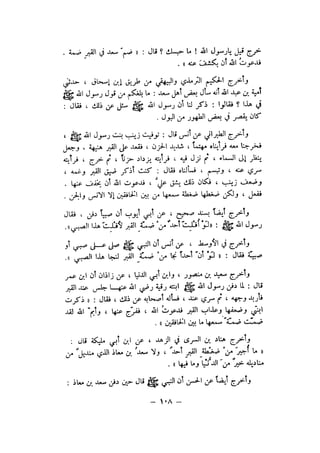 خرج قيل يارسول الله ! ما حبسك ؟ قال : « ضم سعد في القبر ضمة .
فدعوت الله أن يكشف عنه » .
وأخرج الحكيم الترمذي والبيهقي من طريق إبن إسحاق ، حدثني
أمية بن عبد الله أنه سأل بعض أهل سعد : ما بلغكم من قول رسول الله ﷺ
في هذا ؟ فقالوا : ذكر لنا أن رسول الله ﷺ سئل عن ذلك ، فقال :
كان يقصر في بعض الطهور من البول .
وأخرج الطبراني عن أنس قال : توفيت زينب بنت رسول الله ﷺ ،
فخرجنا معه فرأيناه مهتماً ، شديد الحزن ، فقعد على القبر هنيهة . وجعل
ينظر إلى السماء ، ثم نزل فيه ، فرأيته يزداد حزناً ، ثم خرج ، فرأيته
سري عنه ، وتبسم ، فسألناه فقال : كنت أذكر ضيق القبر وغمه ،
وضعف زينب ، فكان ذلك يشق علي ، فدعوت الله أن يخفف عنها .
ففعل ، ولكن ضغطها ضغطة سمعها من بين الخافقين إلا الانس والجن .
وأخرج أيضاً بسند صحيح ، عن أبي أيوب أن صبياً دفن ، فقال
رسول الله ﷺ : «لَوْ أُفْلِتَ أحدٌ من ضَمّة القبر لأفْلِتَ هذا الصبي».
وأخرج في الأوسط ، عن أنس أن النبي ﷺ صلى على صبي أو
صبيّة فقال : « لو أنْ أحداً نجا من ضمّة القبر لنجا هذا الصبي » .
وأخرج سعيد بن منصور ، وابن أبي الدنيا ، عن زاذان أن ابن عمر
قال : لما دفن رسول الله ﷺ ابنته رقية رضي الله عنها جلس عند القبر
فأربد وجهه ، ثم سري عنه ، فسأله أصحابه عن ذلك ، فقال : « ذكرت
ابنتي وضعفها وعذاب القبر فدعوت الله ، ففرّج عنها ، وأيمُ الله لقد
ضمّت ضمّة سمعها ما بين الخافقين » .
وأخرج هناد بن السرى في الزهد ، عن ابن أبي مليكة قال :
« ما أُجيرَ منْ ضغْطة القبر أحدٌ ، ولا سعدُ بن معاذ الذي منديلٌ من
مناديله خيرٌ من الدُّنْيا وما فيها » .
وأخرج أيضاً عن الحسن أن النبي ﷺ قال حين دفن سعد بن معاذ :
— ١٠٨ —